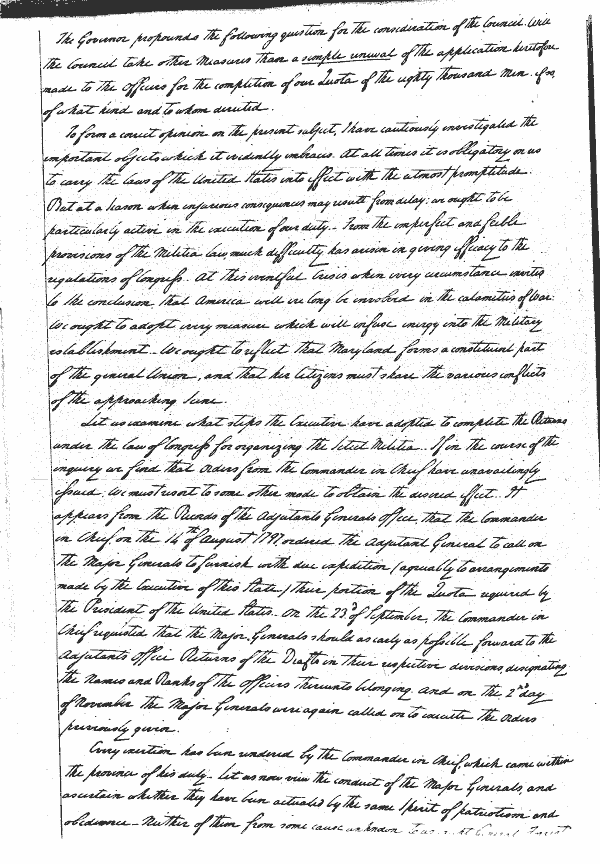 The Governor propounds the following question for the consideration of the Council. Will
the Council take other Measures than a simple renewal of the application heretofore
made to the Officers for the completion of our Quota of the eighty thousand Men. if so,
of what kind and to whom directed.
To form a correct opinion on the present subject, I have cautiously investigated the
important objects which it evidently embraces. At all times it is obligatory on us
to carry the laws of the United States into effect with the utmost promptitude.
But at a season when injurious consequences may result from delay; we ought to be
particularly active in the execution of our duty – From the imperfect and feeble
provisions of the Militia law, much difficulty has arisen in giving efficacy to the
regulations of Congress. At this eventful Crisis when every circumstance invites
to the conclusion that America will ere long be involved in the calamities of War:
We ought to adopt every measure which will infuse energy into the Military
establishment – We ought to reflect that Maryland forms a constituent part
of the general Union, and that her Citizens must share the various conflicts
of the approaching Scene.
Let us examine what steps the Executive have adopted to complete the Returns
under the Law of Congress for organizing the Select Militia. If in the course of the
inquiry we find that orders from the Commander in Chief have unavailingly
issued. We must resort to some other mode to obtain the desired effect. It
appears from the Records of the Adjutants Generals Office, that the Commander
in Chief on the 14th of August 1797 ordered the Adjutant General to call on
the Major Generals to furnish with due expedition / agreeably to arrangements
made by the Executive of this State / their portion of the Quota required by
the President of the United States. On the 23d of September, the Commander in
Chief requested that the Major Generals should as early as possible forward to the
Adjutants Office Returns of the Drafts in their respective divisions, designating
the Names and Ranks of the Officers thereunto belonging. And on the 2nd day
of November the Major Generals were again called on to execute the orders
previously given.
Every exertion has been rendered by the Commander in Chief, which came within
the province of his duty – Let us now view the conduct of the Major Generals, and
ascertain whether they have been actuated by the same Spirit of patriotism and
obedience – Neither of them from some cause unknown to us